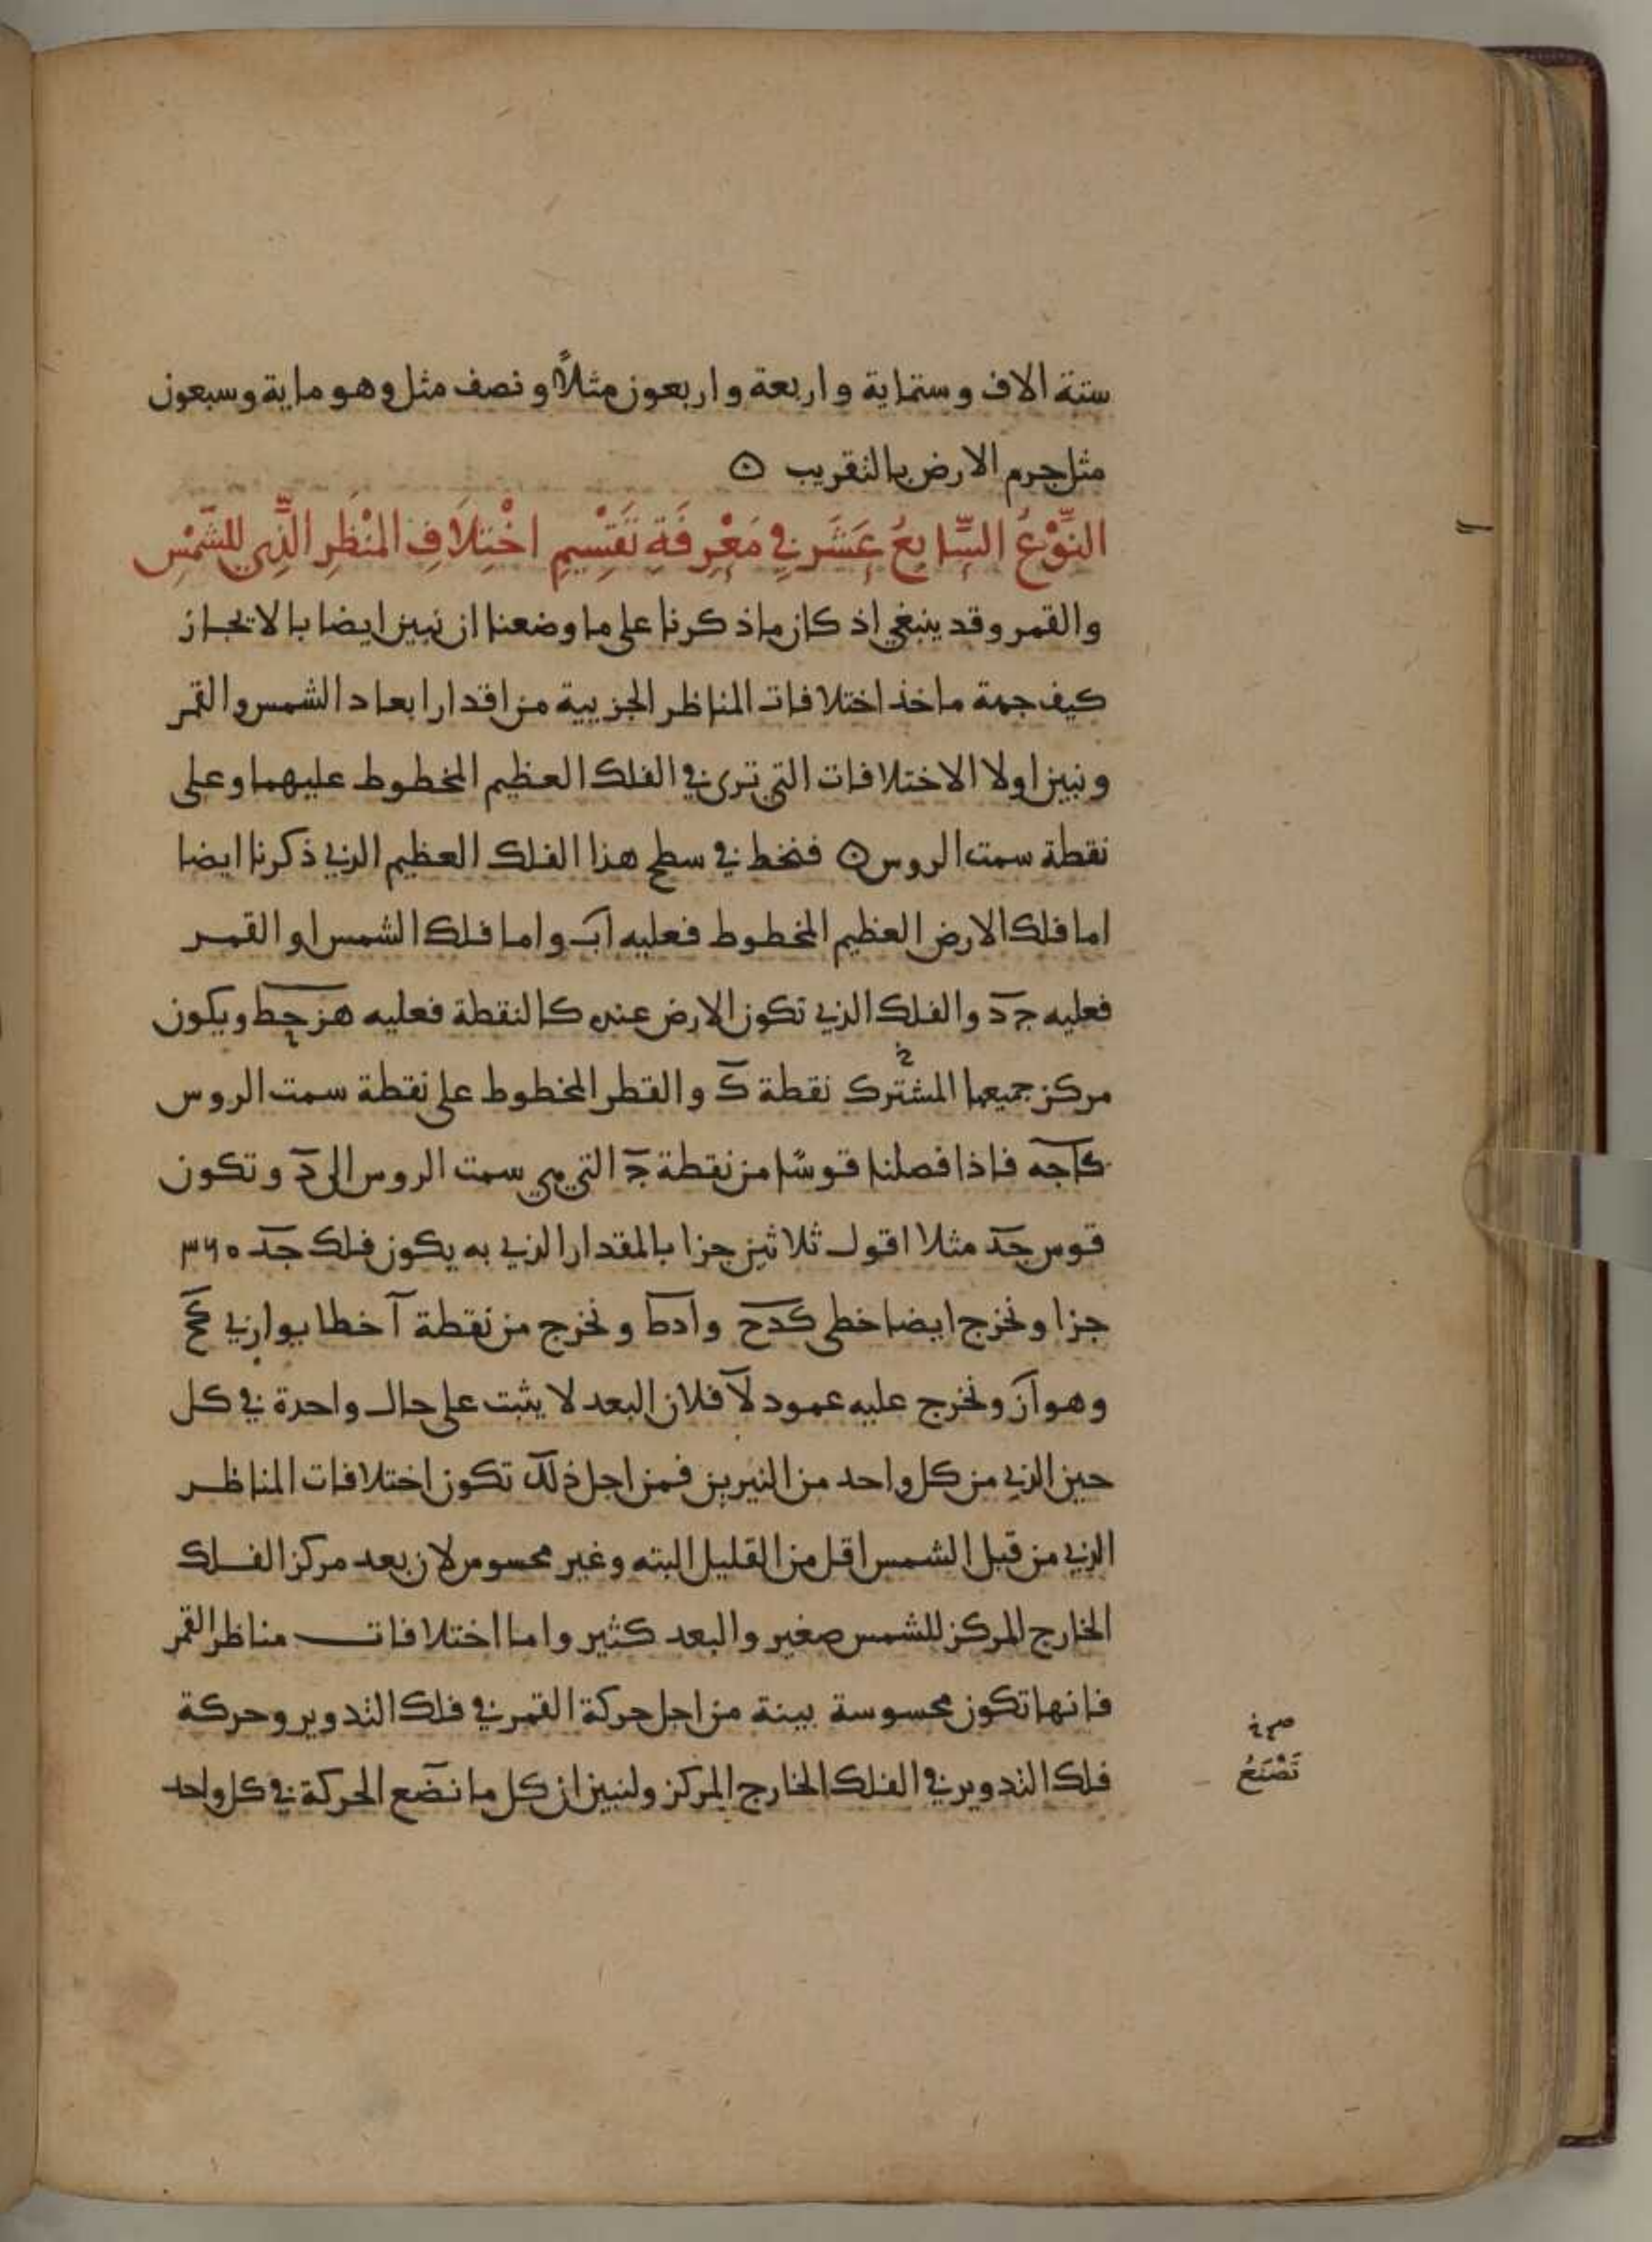 ستة الاف وستماية واربعة واربعون مثلاً ونصف مثل وهو ماية وسبعون
مثل جرم الارض بالتقريب
النَّوْعُ السَّابِعُ عَشَر فِي مَعْرِفَةِ تَقْسِيمِ اخْتِلَافِ المَنْظَرِ الَّذِي للشَّمْسِ
والقمر وقد ينبغي اذ كان ماذكرنا على ما وضعنا ان نبين ايضا بالايجاز
كيف جهة ماخذ اختلافات المناظر الجزيية من اقدار ابعاد الشمس والقمر
ونبين اولا الاختلافات التي ترى في الفلك العظيم المخطوط عليهما وعلى
نقطة سمت الروس فنخط في سطح هذا الفلك العظيم الذي ذكرنا ايضا
اما فلك الارض العظيم المخطوط فعليه اب واما فلك الشمس او القمر
فعليه ج د والفلك الذي تكون الارض عنده كالنقطة فعليه هزحط ويكون
مركز جميعها المشترك نقطة ك والقطر المخطوط على نقطة سمت الروس
كاجه فاذا فصلنا قوسًا من نقطة ج التي هي سمت الروس الى د وتكون
قوس جد مثلا اقول ثلاثين جزا بالمقدار الذي به يكون فلك جد ٣٦٠
جزا ونخرج ايضا خطي كدح وادط ونخرج من نقطة ا خطا يوازي كح
وهو از ونخرج عليه عمود لا فلان البعد لا يثبت على حال واحدة في كل
حين الذي من كل واحد من النيرين فمن اجل ذلك تكون اختلافات المناظر
الذي من قبل الشمس اقل من القليل البته وغير محسوس لان بعد مركز الفلك
الخارج المركز للشمس صغير والبعد كثير واما اختلافات مناظر القمر
فانها تكون محسوسة بينة من اجل حركة القمر في فلك التدوير وحركة
فلك التدوير في الفلك الخارج المركز ولنبين ان كل ما نضع الحركة في كل واحد
تَصْنَعُ